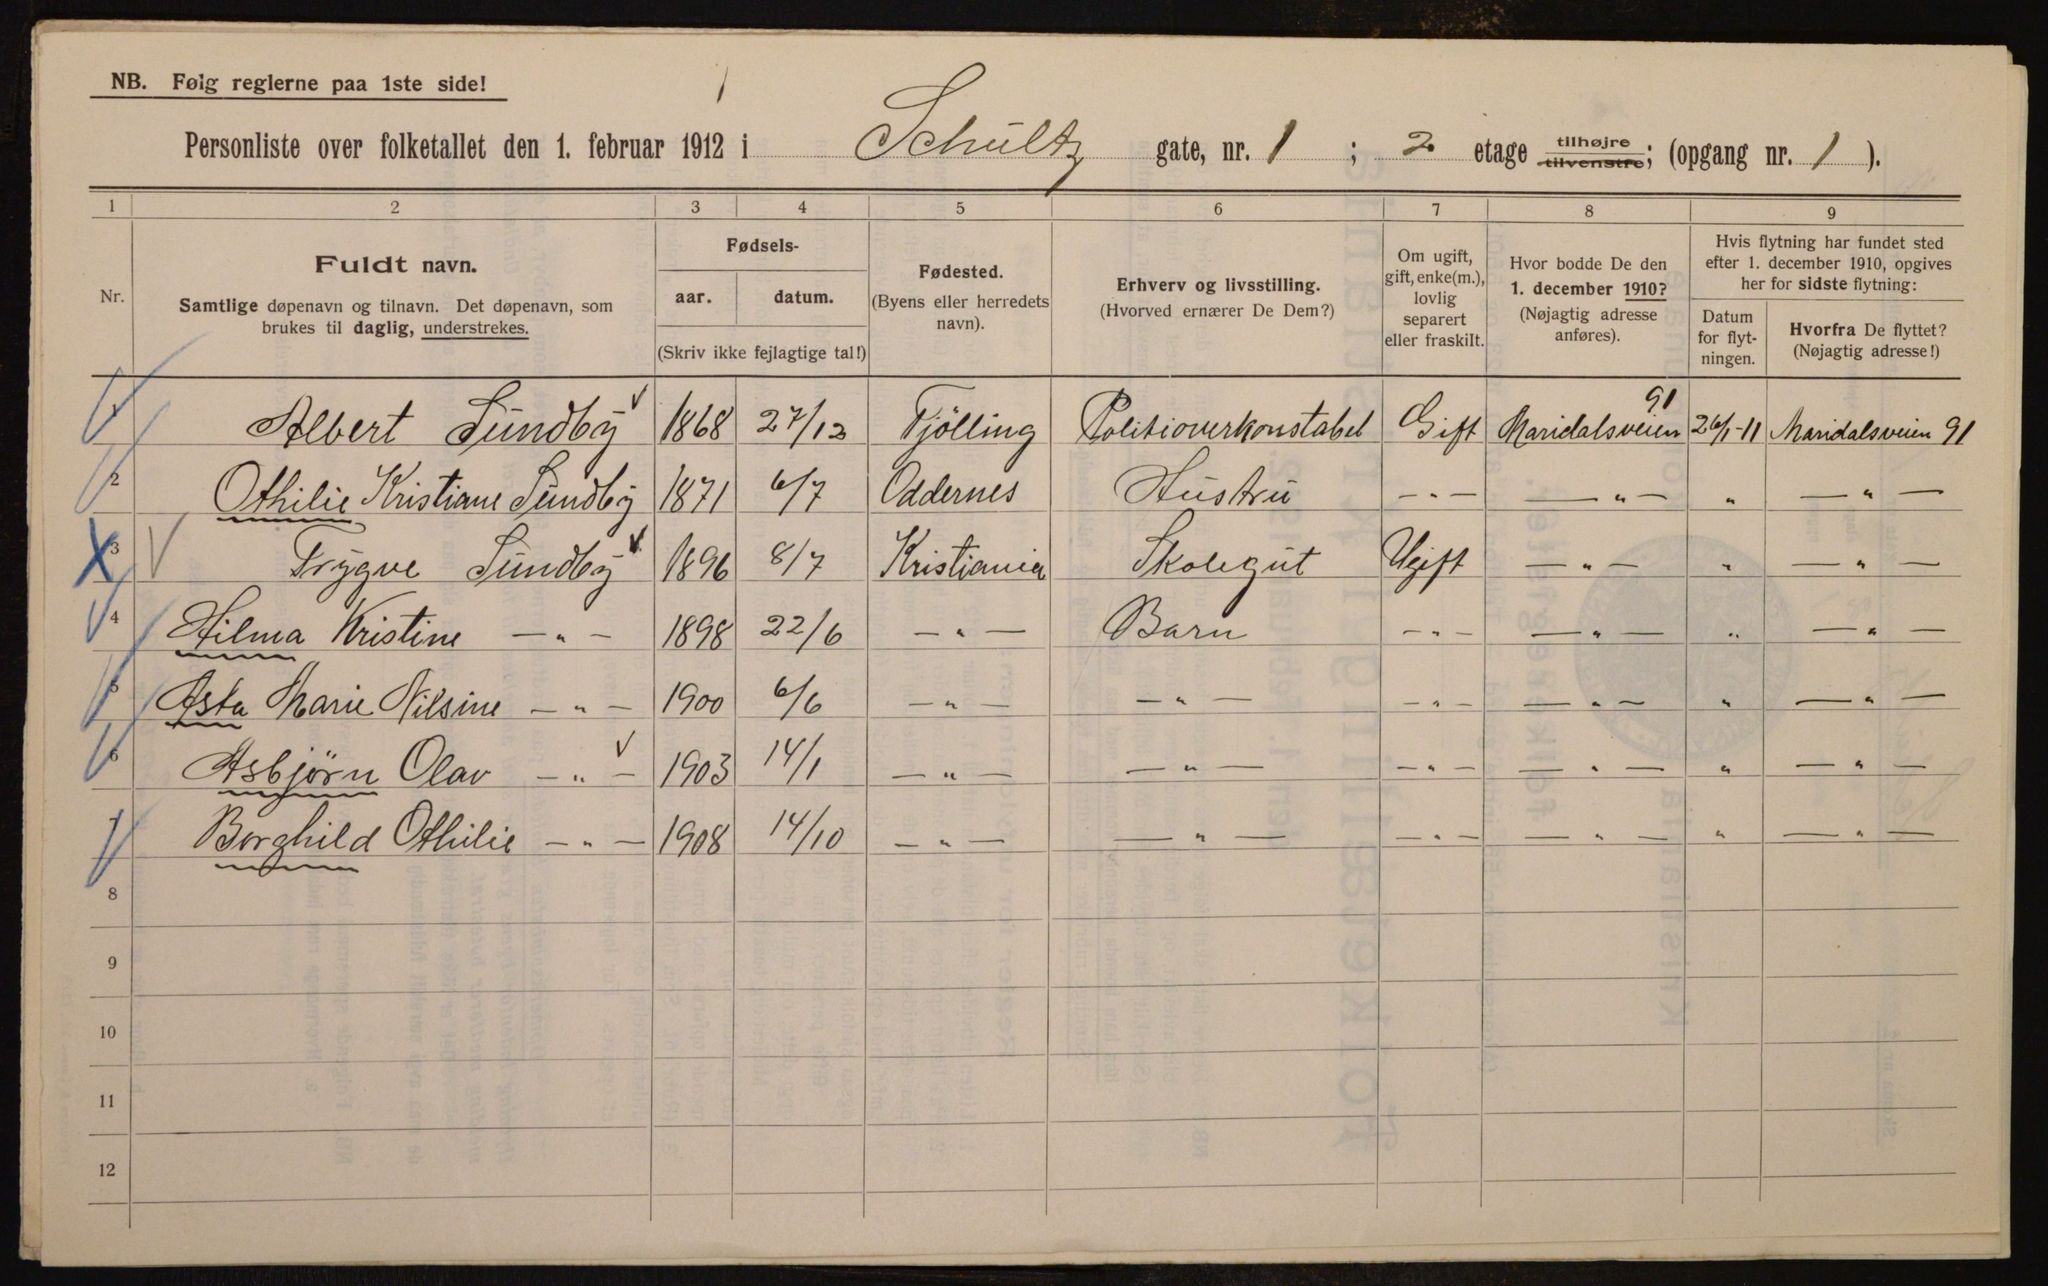 NB. Følg reglerne paa 1ste side!
Personliste over folketallet den 1. februar 1912 i Schultz gate, nr. 1 ; 2 etage tilhøjre tilvenstre; (opgang nr. 1 ).
1 2 3 4 5 6 7 8 9
Nr.
Fuldt navn.
Samtlige døpenavn og tilnavn. Det døpenavn, som
brukes til daglig, understrekes.
Fødsels-
aar. datum.
(Skriv ikke fejlagtige tal!)
Fødested.
(Byens eller herredets
navn).
Erhverv og livsstilling.
(Hvorved ernærer De Dem?)
Om ugift,
gift, enke(m.),
lovlig
separert
eller fraskilt.
Hvor bodde De den
1. december 1910?
(Nøjagtig adresse
anføres).
Hvis flytning har fundet sted
efter 1. december 1910, opgives
her for sidste flytning:
Datum
for flyt-
ningen.
Hvorfra De flyttet?
(Nøjagtig adresse!)
1 Albert Sundby 1868 27/12 Tjölling Politioverkonstabel Gift Maridalsveien 91 26/1-11 Maridalsveien 91
2 Othilie Kristiane Sundby 1871 6/7 Oddernes Hustru — " — — " — " — " —
3 Trygve Sundby 1896 8/7 Kristiania Skolegut Ugift — " — " — " —
4 Hilma Kristine — " — 1898 22/6 — " — Barn — " — — " — " — " —
5 Asta Marie Nilsine — " — 1900 6/6 — " — — " — — " — — " — " — " —
6 Asbjørn Olav — " — 1903 14/1 — " — — " — — " — — " — " — " —
7 Borghild Othilie — " — 1908 14/10 — " — — " — — " — — " — " — " —
8
9
10
11
12